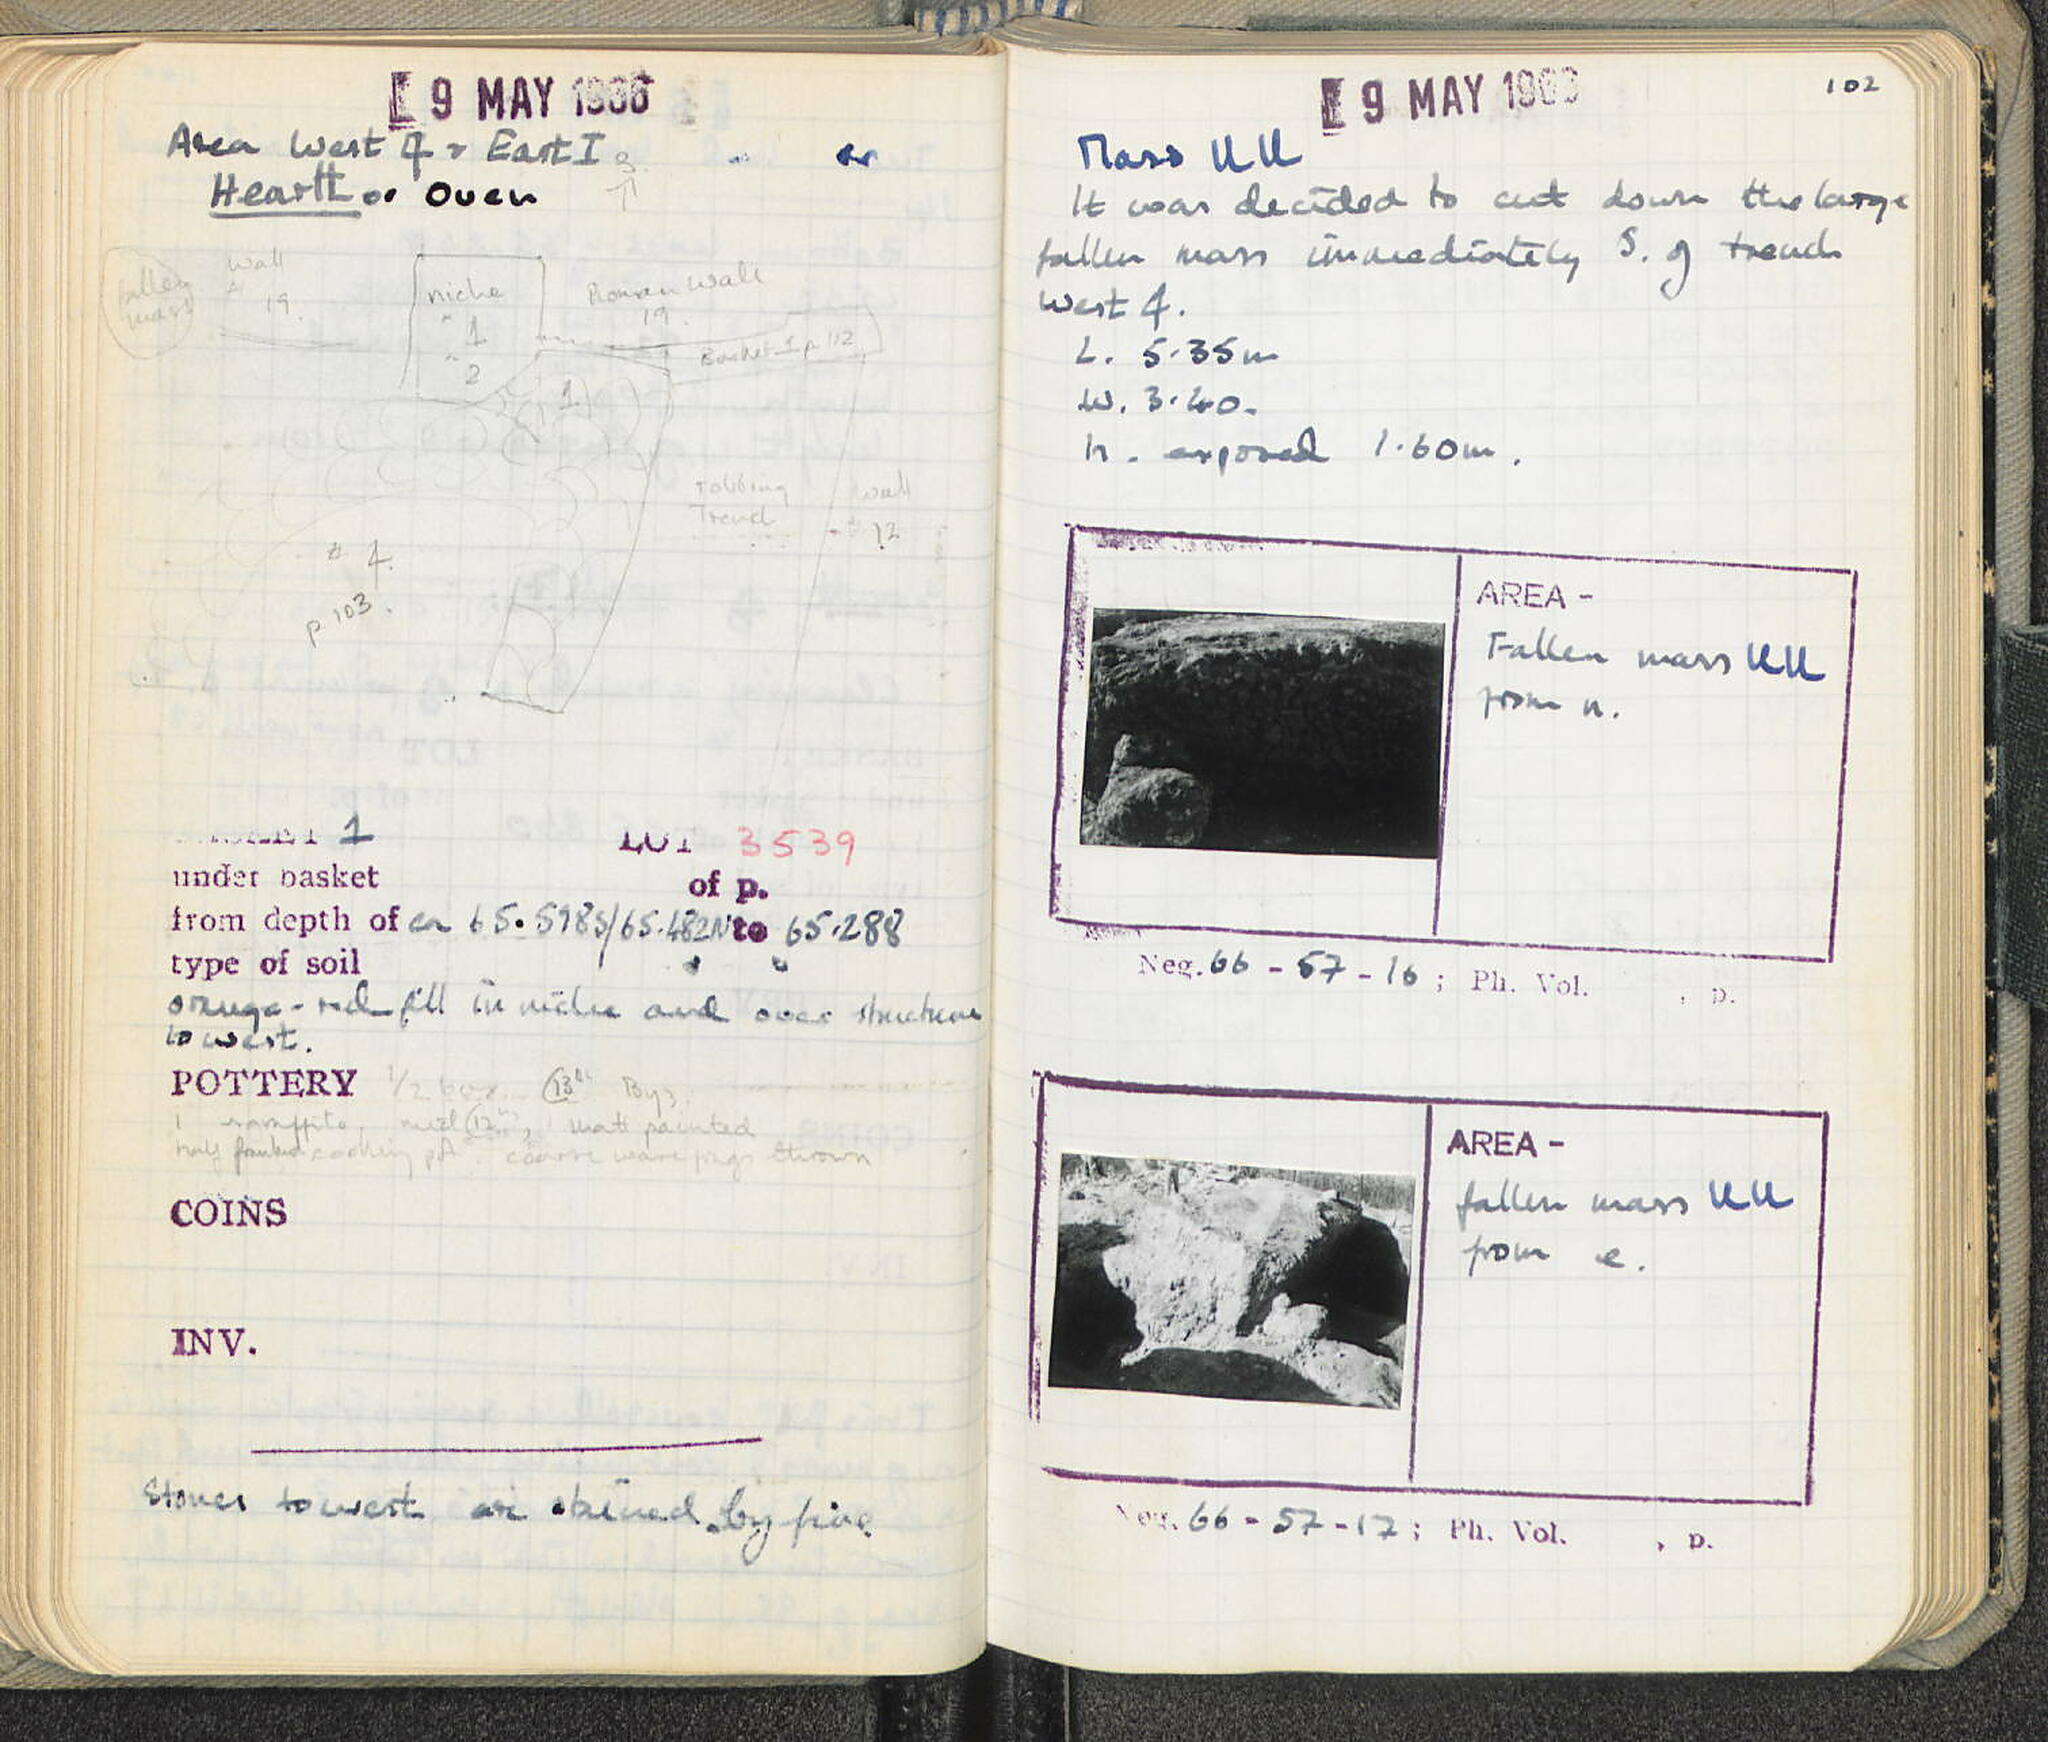 9 MAY 1966
Area West 4 & East I
Hearth or Oven
S.
fallen
mass
Wall
19.
niche
1
2
Roman Wall
19.
Basket 1 p 112
1
robbing
Trench
Wall
12
4
p. 103.
BASKET 1 LOT 3539
under basket of p.
from depth of ca 65.598S/65.482N to 65.288
type of soil
orange-red fill in niche and over structure
to west.
POTTERY 1/2 box 13th Byz.
1 sgraffito, mid 12th, 1 matt painted
cooking pot. coarse ware frags thrown
COINS
INV.
Stones to west are by fire
9 MAY 1966
102
Mass UU
It was decided to cut down the large
fallen mass immediately S. of trench
West 4.
L. 5.35m
W. 3.40.
h. exposed 1.60m.
AREA -
Fallen mass UU
from n.
Neg. 66 - 57 - 16 ; Ph. Vol. , p.
AREA -
fallen mass UU
from e.
Neg. 66 - 57 - 17 ; Ph. Vol. , p.